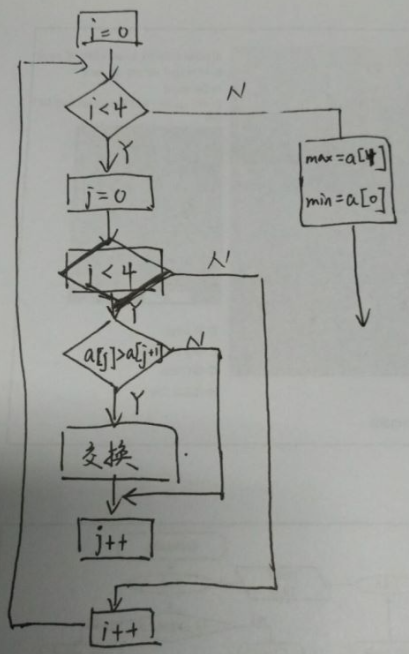 i=0
i<4
N
Y
max=a[4]
min=a[0]
j=0
j<4
N
Y
a[j]>a[j+1]
N
Y
交换
j++
i++